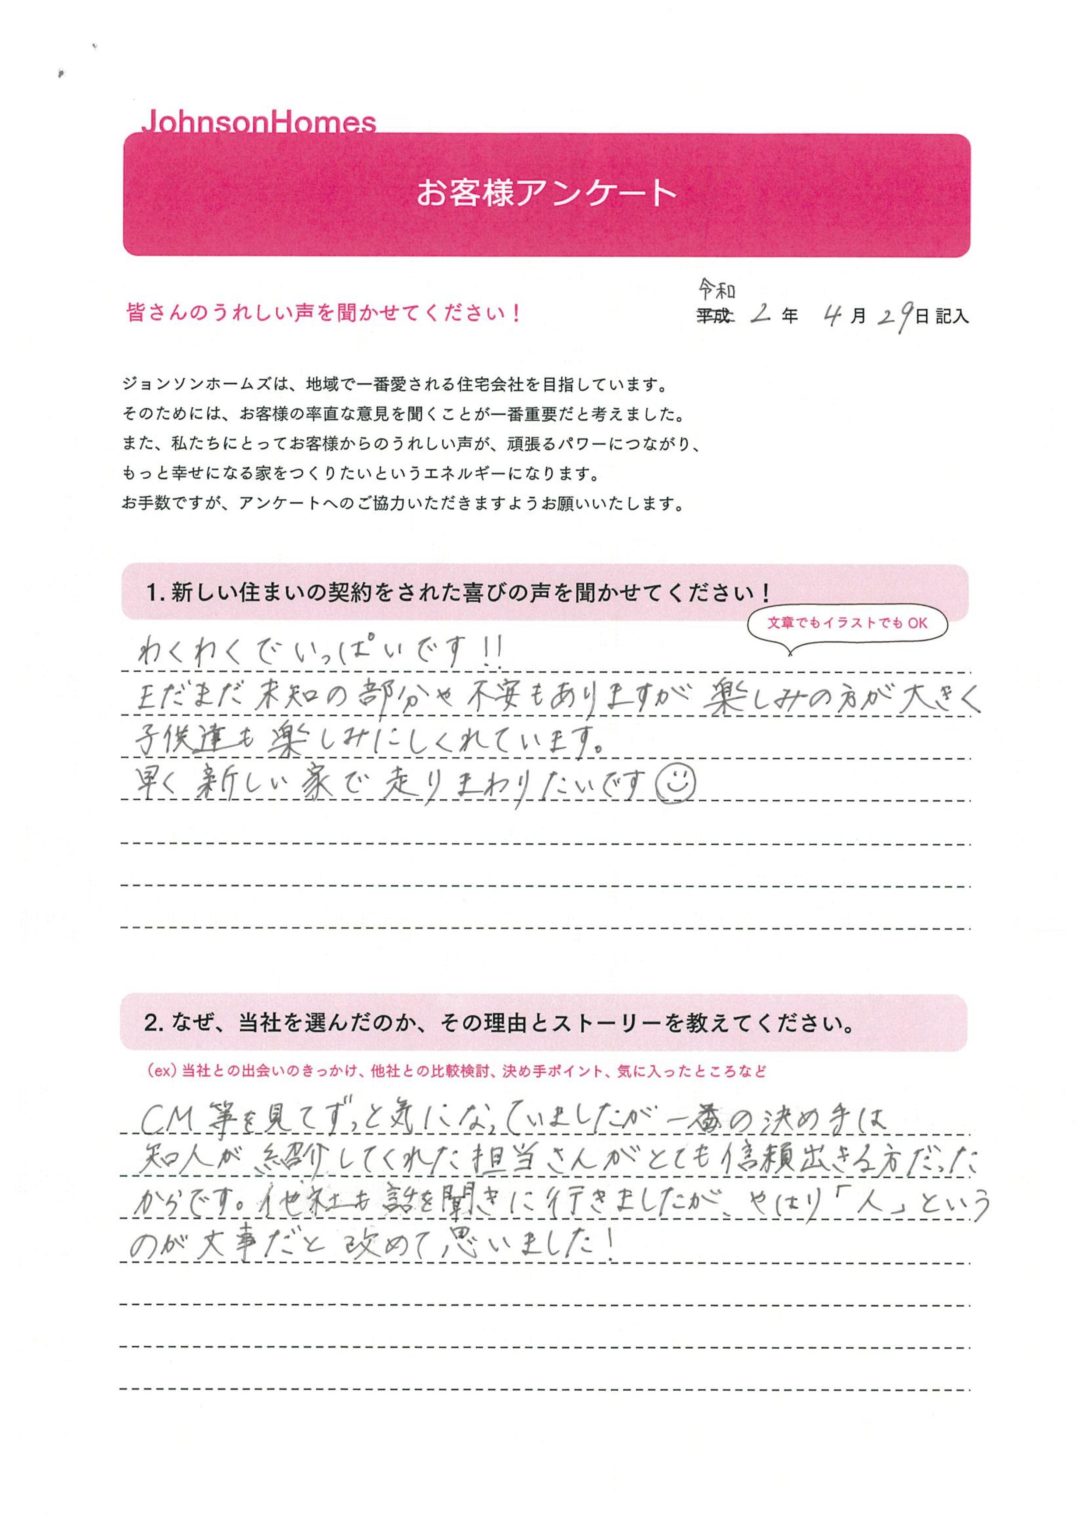 JohnsonHomes
お客様アンケート
皆さんのうれしい声を聞かせてください！
令和
平成 2 年 4 月 29 日 記入
ジョンソンホームズは、地域で一番愛される住宅会社を目指しています。
そのためには、お客様の率直な意見を聞くことが一番重要だと考えました。
また、私たちにとってお客様からのうれしい声が、頑張るパワーにつながり、
もっと幸せになる家をつくりたいというエネルギーになります。
お手数ですが、アンケートへのご協力いただきますようお願いいたします。
1. 新しい住まいの契約をされた喜びの声を聞かせてください！
文章でもイラストでも OK
わくわくでいっぱいです!!
まだまだ未知の部分や不安もありますが楽しみの方が大きく
子供達も楽しみにしくれています。
早く新しい家で走りまわりたいです
2. なぜ、当社を選んだのか、その理由とストーリーを教えてください。
（ex）当社との出会いのきっかけ、他社との比較検討、決め手ポイント、気に入ったところなど
CM等を見てずっと気になっていましたが一番の決め手は
知人が紹介してくれた担当さんがとても信頼出きる方だった
からです。他社も話を聞きに行きましたが、やはり「人」という
のが大事だと改めて思いました！